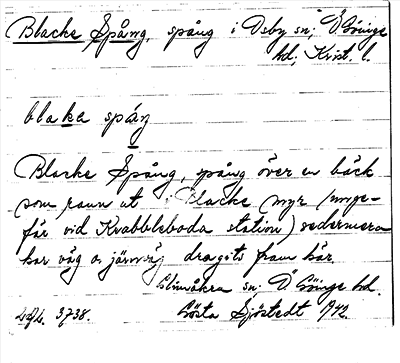 Blacke Spång, spång i Osby sn; Ö. Göinge
hd; Krist. l.
blaka spåŋ
Blacke Spång, spång över en bäck
som rann ut i Blacke myr (unge-
fär vid Krabbleboda station) sedermera
har väg o järnväj dragits fram här.
Glimåkra sn. Ö. Göinge hd.
3738. Gösta Sjöstedt 1942.